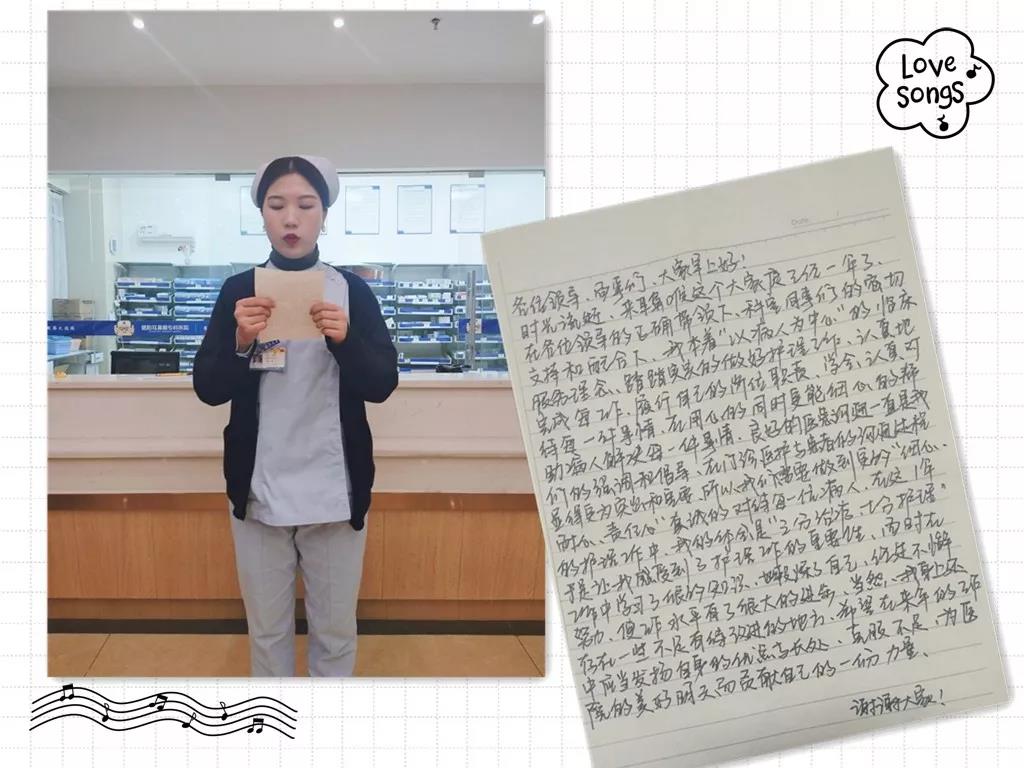 Love
songs
耳鼻喉专科医院
Date
各位领导、同事们、大家早上好!
时光流逝、来耳鼻喉这个大家庭已有一年了、
在各位领导的正确带领下、科室同事们的密切
支持和配合下、我本着"以病人为中心"的临床
服务理念、踏踏实实的做好护理工作、认真地
完成每工作、履行自己的岗位职责、学会认真对
待每一件事情、在用心的同时更能细心的帮
助病人解决每一件事情、良好的医患沟通一直是我
们的强调和倡导、在门诊医护与患者的沟通过程
显得更为突出和重要、所以我们需要做到更的"细心、
耐心、责任心"真诚的对待每一位病人、在这1年
的护理工作中、我的体会是"三分治疗、七分护理"
于是让我感受到了护理工作的重要性、同时在
工作中学习了很的知识、也锻炼了自己、经过不懈
努力、使工作水平有了很大的进步、当然、我身上还
存在一些不足有待改进的地方、希望在来年的工作
中应当发扬自身的优点与长处、克服不足、为医
院的美好明天而贡献自己的一份力量、
谢谢大家!